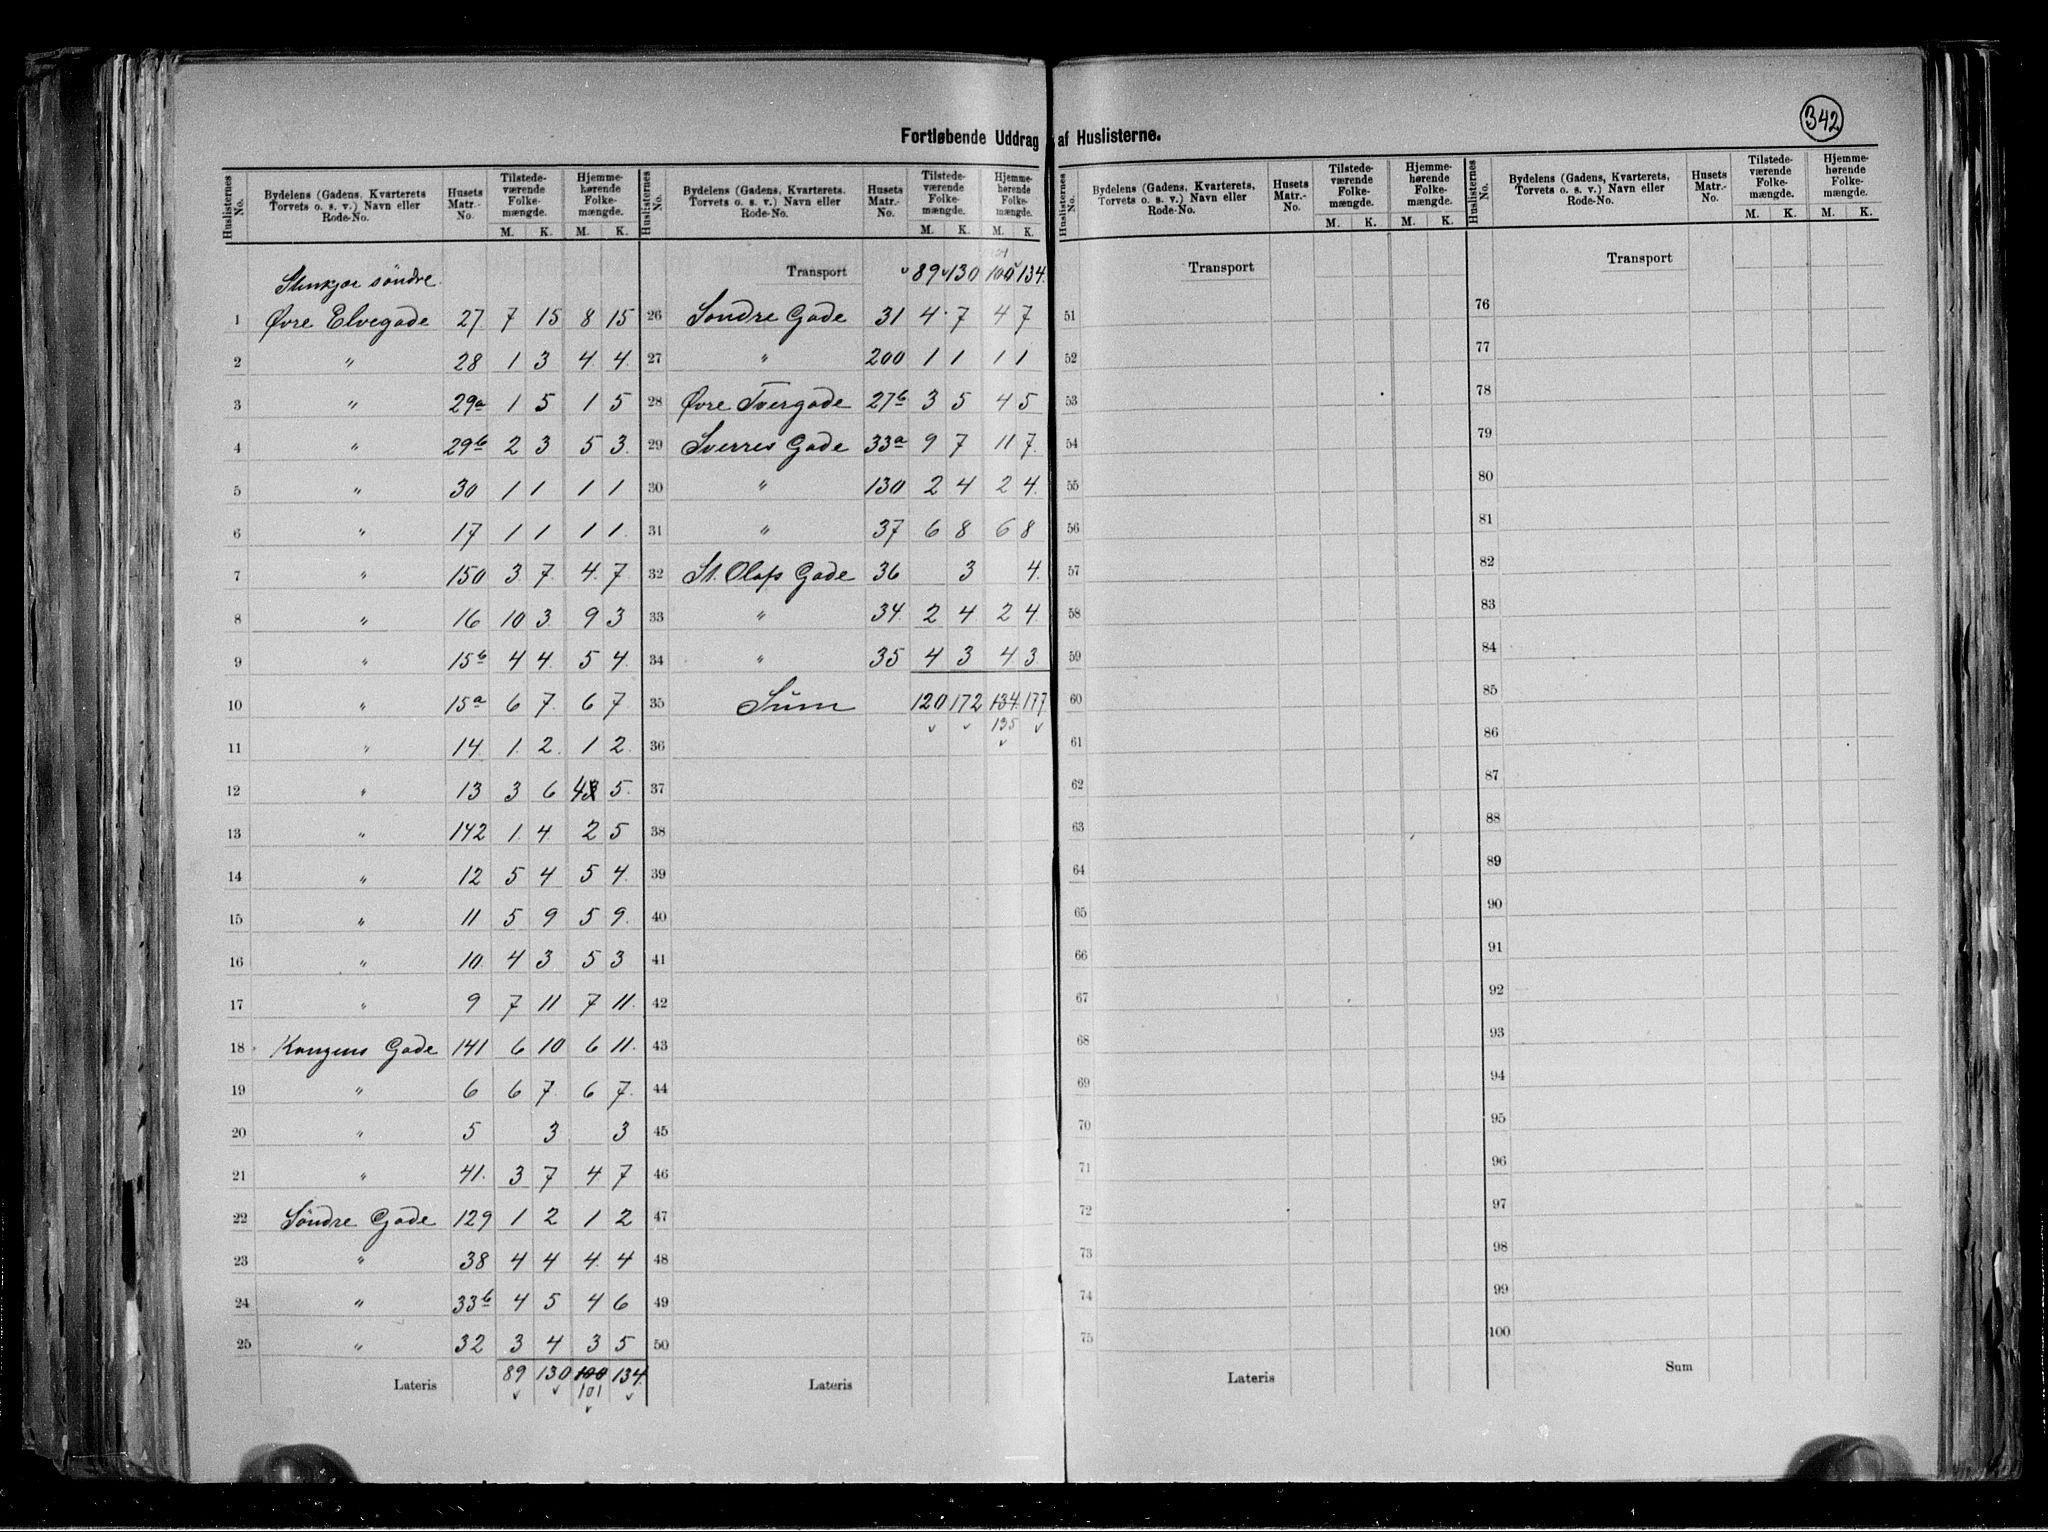 342
Fortløbende Uddrag af Huslisterne.
Huslisternes No. | Bydelens (Gadens, Kvarterets Torvets o. s. v.) Navn eller Rode-No. | Husets Matr.-No. | Tilstedeværende Folkemængde. M. K. | Hjemmehørende Folkemængde. M. K.
Stenkjær söndre.
1 Øvre Elvegade 27 7 15 8 15
2 " 28 1 3 4 4
3 " 29a 1 5 1 5
4 " 29b 2 3 5 3
5 " 30 1 1 1 1
6 " 17 1 1 1 1
7 " 150 3 7 4 7
8 " 16 10 3 9 3
9 " 15b 4 4 5 4
10 " 15a 6 7 6 7
11 " 14 1 2 1 2
12 " 13 3 6 4 3 5
13 " 142 1 4 2 5
14 " 12 5 4 5 4
15 " 11 5 9 5 9
16 " 10 4 3 5 3
17 " 9 7 11 7 11
18 Kongens Gade 141 6 10 6 11
19 " 6 6 7 6 7
20 " 5 3 3
21 " 41 3 7 4 7
22 Söndre Gade 129 1 2 1 2
23 " 38 4 4 4 4
24 " 33b 4 5 4 6
25 " 32 3 4 3 5
Lateris 89 130 100 134
101
Huslisternes No. | Bydelens (Gadens, Kvarterets. Torvets o. s. v.) Navn eller Rode-No. | Husets Matr.-No. | Tilstedeværende Folkemængde. M. K. | Hjemmehørende Folkemængde. M. K.
101
Transport 89 130 100 134
26 Söndre Gade 31 4 7 4 7
27 " 200 1 1 1 1
28 Øvre Tvergade 27b 3 5 4 5
29 Sverres Gade 33a 9 7 11 7
30 " 130 2 4 2 4
31 " 37 6 8 6 8
32 St. Olafs Gade 36 3 4
33 " 34 2 4 2 4
34 " 35 4 3 4 3
35 Sum 120 172 134 177
135
36
37
38
39
40
41
42
43
44
45
46
47
48
49
50
Lateris
Huslisternes No. | Bydelens (Gadens, Kvarterets, Torvets o. s. v.) Navn eller Rode-No. | Husets Matr.-No. | Tilstedeværende Folkemængde. M. K. | Hjemmehørende Folkemængde. M. K.
Transport
51
52
53
54
55
56
57
58
59
60
61
62
63
64
65
66
67
68
69
70
71
72
73
74
75
Lateris
Huslisternes No. | Bydelens (Gadens, Kvarterets, Torvets o. s. v.) Navn eller Rode-No. | Husets Matr.-No. | Tilstedeværende Folkemængde. M. K. | Hjemmehørende Folkemængde. M. K.
Transport
76
77
78
79
80
81
82
83
84
85
86
87
88
89
90
91
92
93
94
95
96
97
98
99
100
Sum